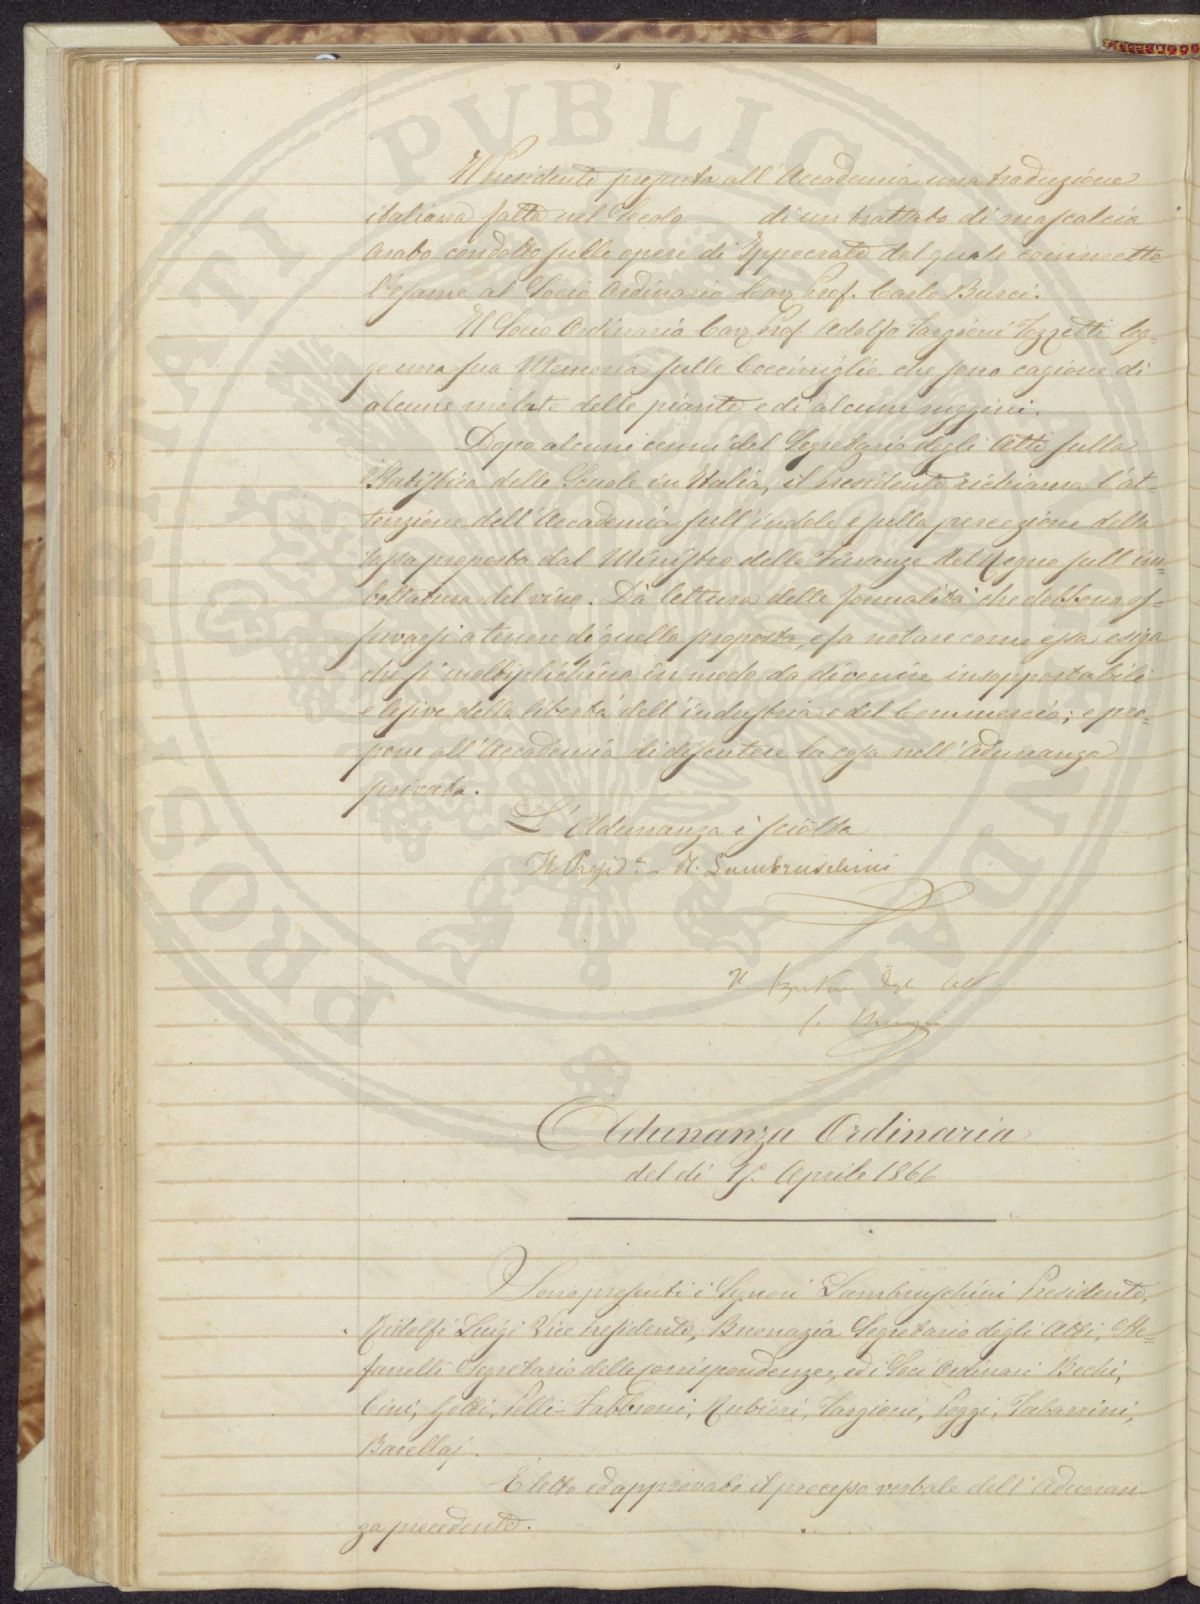 PROSPERITATI PUBLICAE AUGENDAE
Il Presidente presenta all'Accademia una traduzione
italiana fatta nel Secolo di un trattato di mascalcia
Arabo condotto sulle opere di Ippocrate del quale commette
l'esame al Socio Ordinario Cav. Prof. Carlo Burci.
Il Socio Ordinario Cav. Prof. Adolfo Targioni Tozzetti leg=
ge una sua Memoria sulle Cocciniglie che sono cagione di
alcune melate delle piante e di alcune ruggini.
Dopo alcuni cenni del Segretario degli Atti sulla
Statistica delle Scuole in Italia, il Presidente richiama l'at=
tenzione dell'Accademia sull'indole e sulla percezione della
tassa proposta dal Ministro delle Finanze del Regno sull'im=
bottatura del vino. Dà lettura delle formalità che debbono os=
servarsi a tenore di quella proposta, e fa notare come essa esiga
che si moltiplichino in modo da divenire insopportabili
e lesive della libertà dell'industria e del Commercio; e pro=
pone all'Accademia di discutere la cosa nell'Adunanza
privata.
L'Adunanza è sciolta
Il Presid.te R. Lambruschini
Il Segretario degli Atti
Adunanza Ordinaria
del dì 15. Aprile 1866
Sono presenti i Signori Lambruschini Presidente,
Ridolfi Luigi Vice Presidente, Buonazia Segretario degli Atti, Ste=
fanelli Segretario delle Corrispondenze, ed i Soci Ordinari Bechi,
Cini, Gotti, Pelli-Fabbroni, Rubieri, Targioni, Poggi, Tabarrini,
Barellaj.
È letto ed approvato il processo verbale dell'Adunan=
za precedente.